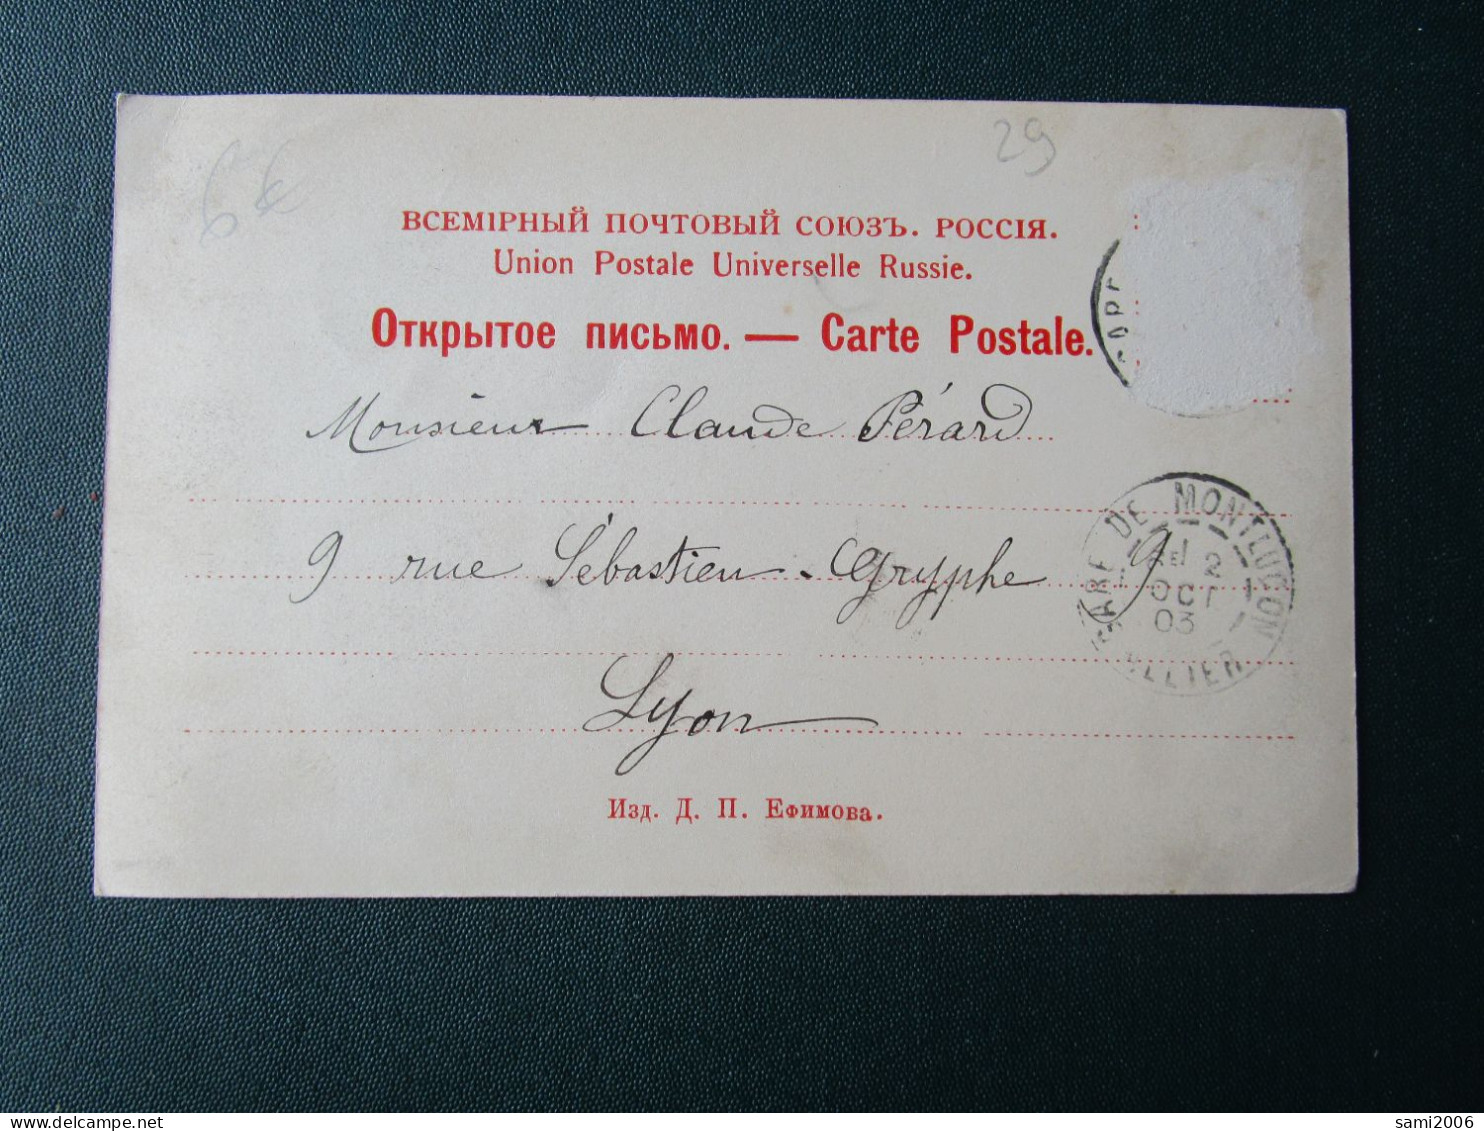 6€
29
ВСЕМІРНЫЙ ПОЧТОВЫЙ СОЮЗЪ. РОССІЯ.
Union Postale Universelle Russie.
Открытое письмо. — Carte Postale.
Monsieur Claude Pérard
9 rue Sébastien-Gryphe 9
Lyon
GARE DE MONTLUÇON
2
OCT
03
ALLIER
Изд. Д. П. Ефимова.
sami2006